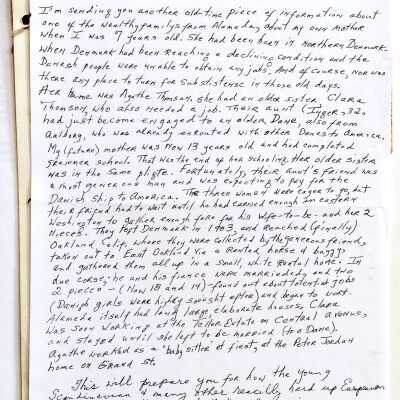 I'm sending you another old-time piece of information about
one of the wealthy familys from Alameda, about my own mother
when I was 9 years old. She had been born in Northern Denmark.
When Denmark had been reaching a declining condition and the
Danish people were unable to obtain any jobs. And of course, nor was
there any place to turn for substistense in those old days.
Her name was Agathe Thomsen, she had an older sister Clara
Thomsen, who also needed a job. Their aunt (Inger, 32)
had just become engaged to an older Dane, also from
Aalborg, who was already enrouted with other Danes to America.
My (future) mother was now 13 years old and had completed
grammer school. That was the end of her schooling. Her older sister
was in the same plight. Fortunately, their aunt's friend was
a most generous man and was expecting to pay for the
Danish ship to America. The three women were eager to go, but
their friend had to wait until he had earned enough in eastern
Washington to gather enough fare for his wife-to-be - and her 2
nieces. They left Denmark in 1903, and reached (finally)
Oakland Calif, where they were collected by the generous friend,
taken out to East Oakland via a rented, horse & buggy,
and gathered them all up in a small, white rental home. In
due corse, he and his fiance were marriaded, and two
nieces - (now 18 and 14) - found out about potential jobs
(Danish girls were highly sought after) and began to work.
Alameda itself had many large elaborate houses. Clara
was soon working at the Teller Estate on Central avenue,
and stayed until she left to be married (to a Dane).
Agathe worked as a "baby sitter" at first, at the Peter Jordan
home on Grand St.
This will prepare you for how the young
Scandinavian & many other really hard up European